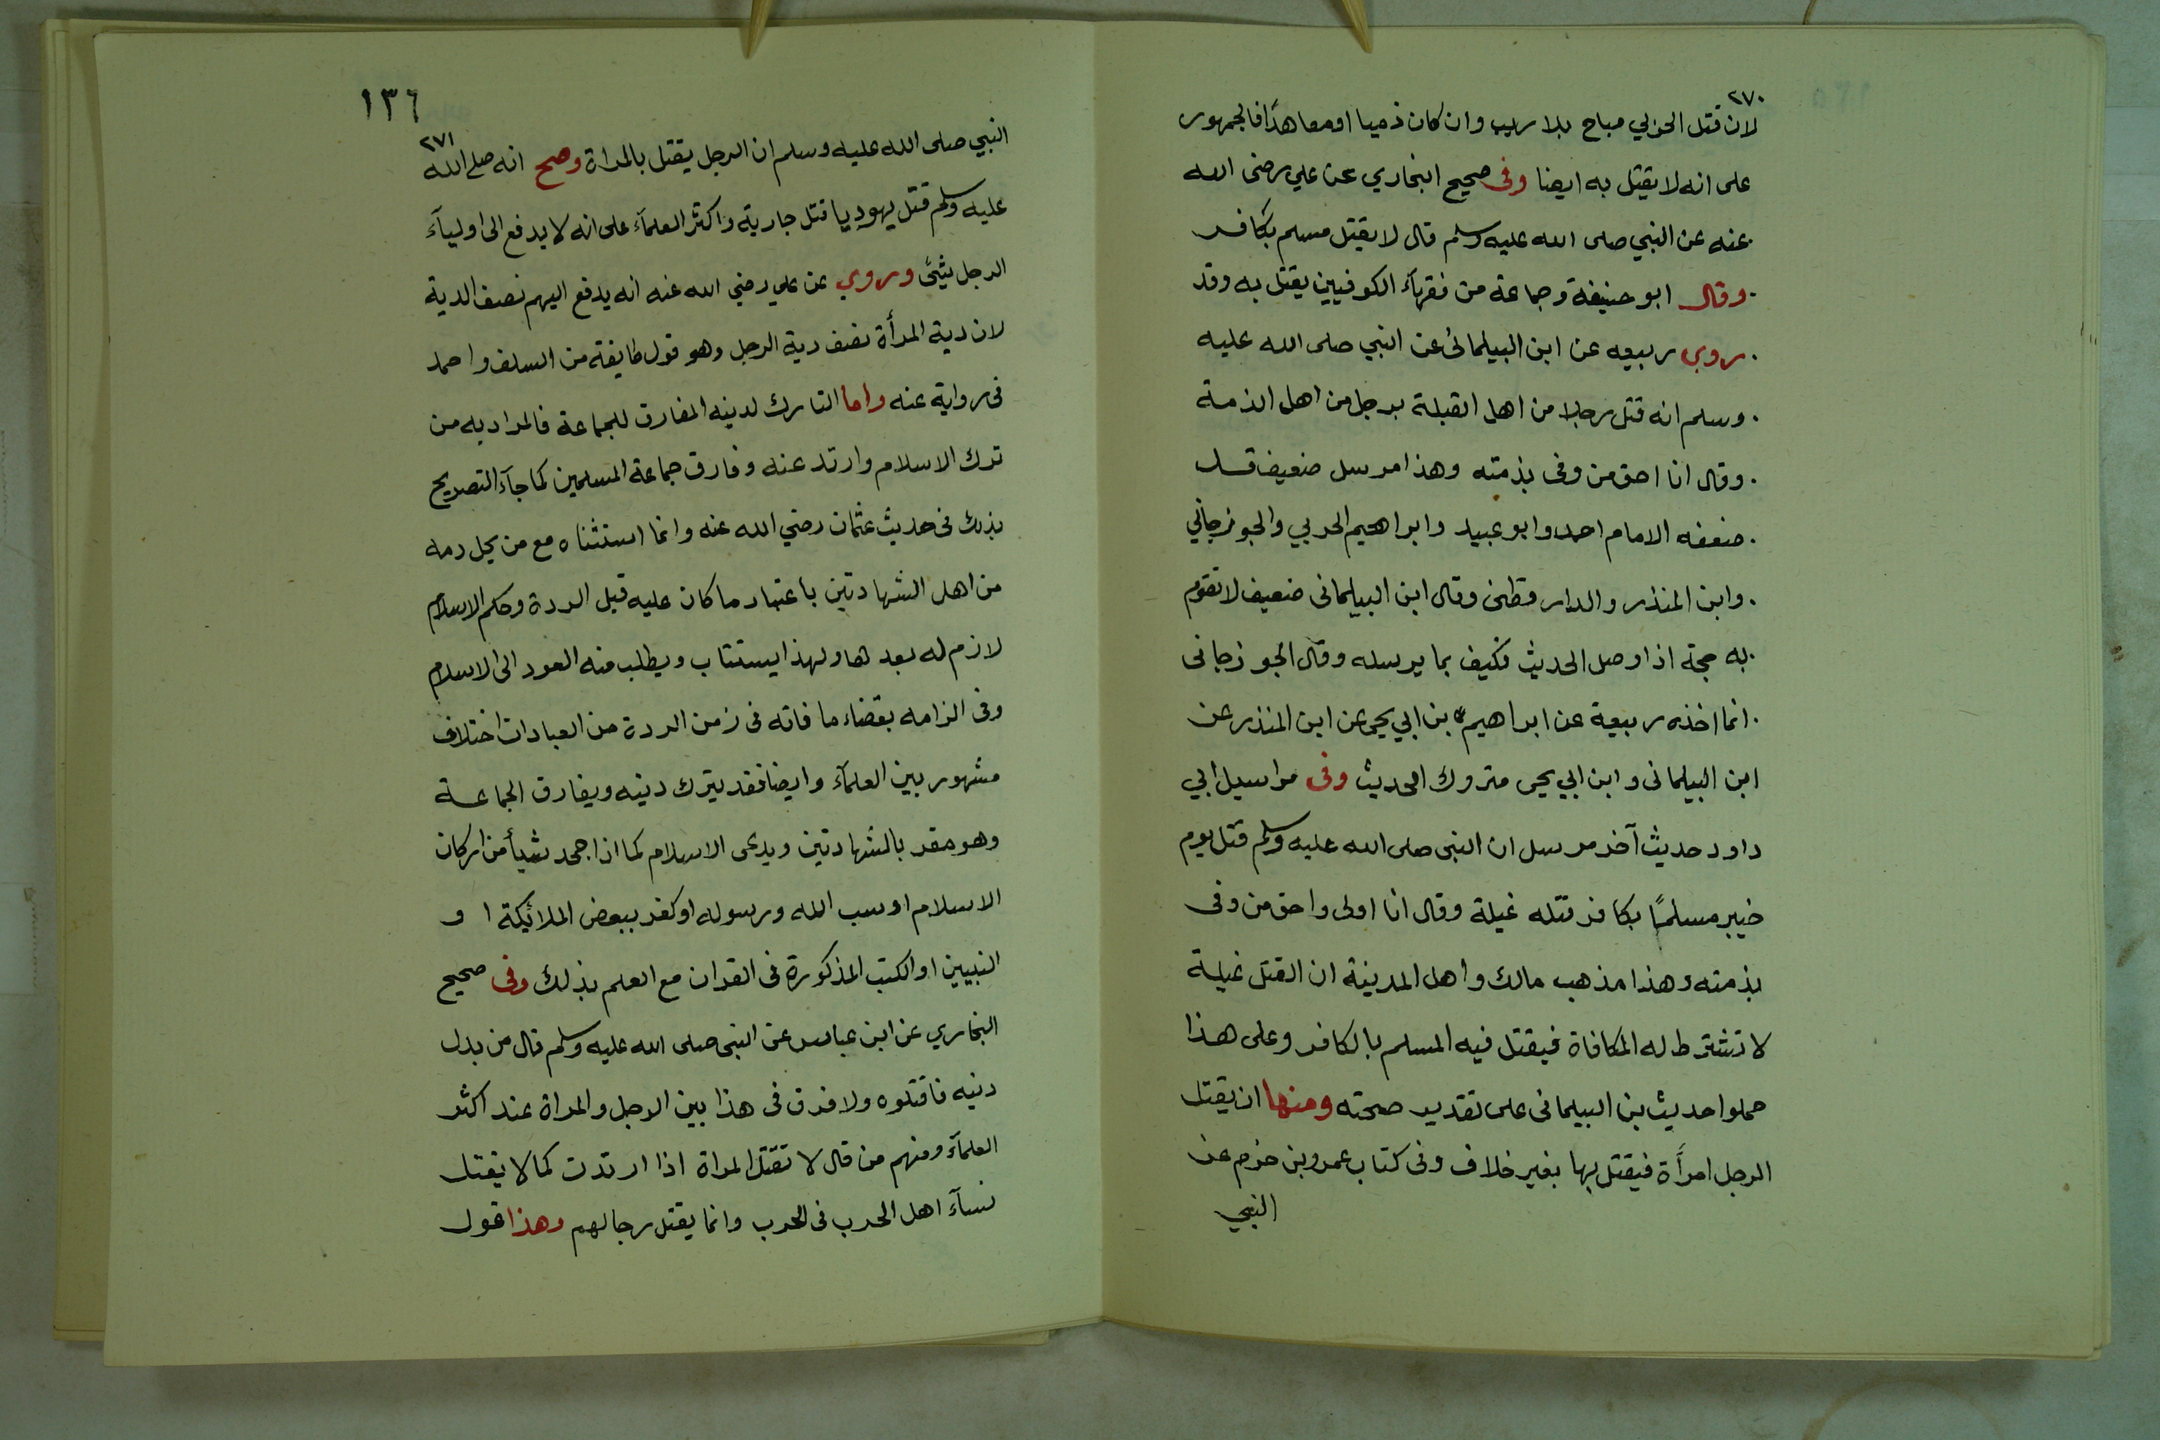 ٢٧٠
لان قتل الحربي مباح بلا ريب وان كان ذميا او معاهدًا فالجمهور
على انه لا يقتل به ايضا وفى صحيح البخاري عن علي رضى الله
عنه عن النبي صلى الله عليه وسلم قال لا يقتل مسلم بكافر
وقال ابو حنيفة وجماعة من فقهآء الكوفيين يقتل به وقد
روى ربيعه عن ابن البيلمانى عن النبي صلى الله عليه
وسلم انه قتل رجلا من اهل القبلة برجل من اهل الذمة
وقال انا احق من وفى بذمته وهذا مرسل ضعيف قد
ضعفه الامام احمد وابو عبيد وابراهيم الحربي والجوزجاني
وابن المنذر والدارقطنى وقال ابن البيلمانى ضعيف لا تقوم
به حجة اذا وصل الحديث فكيف بما يرسله وقال الجوزجانى
انما اخذه ربيعة عن ابراهيم بن ابي يحيى عن ابن المنذر عن
ابن البيلمانى وابن ابي يحيى متروك الحديث وفى مراسيل ابي
داود حديث آخر مرسل ان النبى صلى الله عليه وسلم قتل يوم
خيبر مسلمًا بكافر قتله غيلة وقال انا اولى واحق من وفى
بذمته وهذا مذهب مالك واهل المدينة ان القتل غيلة
لا تشترط له المكافاة فيقتل فيه المسلم بالكافر وعلى هذا
حملوا حديث بن البيلمانى على تقدير صحته ومنها ان يقتل
الرجل امرأة فيقتل بها بغير خلاف وفى كتاب عمرو بن حزم عن
النبي
١٣٦
٢٧١
النبي صلى الله عليه وسلم ان الرجل يقتل بالمراة وصح انه صلى الله
عليه وسلم قتل يهوديا قتل جارية واكثر العلمآء على انه لا يدفع الى اوليآء
الرجل شئ وروي عن علي رضي الله عنه انه يدفع اليهم نصف الدية
لان دية المرأة نصف دية الرجل وهو قول طايفة من السلف واحمد
فى رواية عنه واما التارك لدينه المفارق للجماعة فالمراد به من
ترك الاسلام وارتد عنه وفارق جماعة المسلمين كما جآء التصريح
بذلك فى حديث عثمان رضي الله عنه وانما استثناه مع من يحل دمه
من اهل الشهادتين باعتبار ما كان عليه قبل الردة وحكم الاسلام
لازم له بعدها ولهذا يستتاب ويطلب منه العود الى الاسلام
وفى الزامه بقضاء ما فاته فى زمن الردة من العبادات اختلاف
مشهور بين العلمآء وايضا فقد يترك دينه ويفارق الجماعة
وهو مقر بالشهادتين ويدعى الاسلام كما اذا جحد شيأ من اركان
الاسلام او سب الله ورسوله او كفر ببعض الملائكة او
النبيين او الكتب المذكورة فى القران مع العلم بذلك وفى صحيح
البخاري عن ابن عباس عن النبى صلى الله عليه وسلم قال من بدل
دينه فاقتلوه ولا فرق فى هذا بين الرجل والمراة عند اكثر
العلمآء ومنهم من قال لا تقتل المراة اذا ارتدت كما لا يقتل
نسآء اهل الحرب فى الحرب وانما يقتل رجالهم وهذا قول